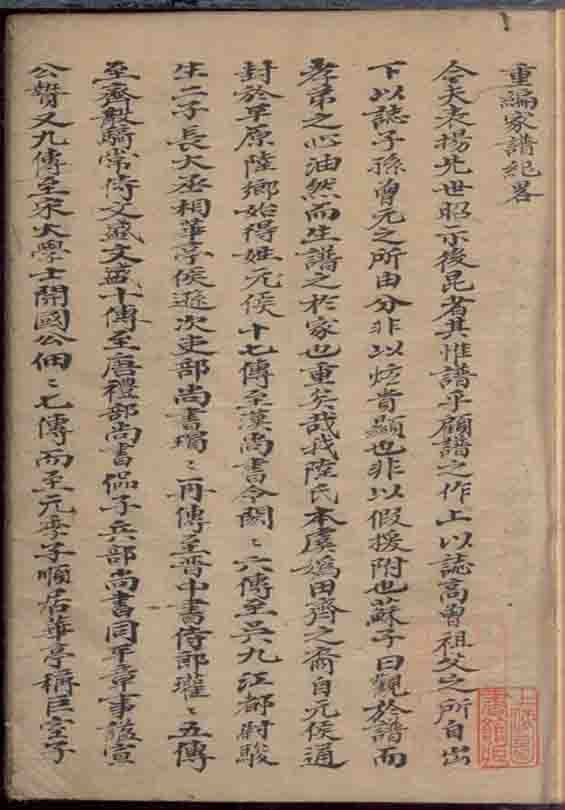 重編家譜紀畧
今夫表揚先世昭示後昆者其惟譜乎顧譜之作上以誌高曾祖父之所自出
下以誌子孫曾元之所由分非以炫貴顯也非以假援附也蘇子曰觀於譜而
孝弟之心油然而生譜之於家也重矣哉我陸氏本虞媯田齊之裔自元侯通
封於平原陸鄉始得姓元侯十七傳至漢尚書令閎〻六傳至吳九江都尉駿
生二子長大丞相華亭侯遜次吏部尚書瑁〻再傳至晋中書侍郎瓘〻五傳
至齊散騎常侍文盛文盛十傳至唐禮部尚書侶子兵部尚書同平章事蘊宣
公贄又九傳至宋大學士開國公佃〻七傳而至元季子順居華亭稱巨室子